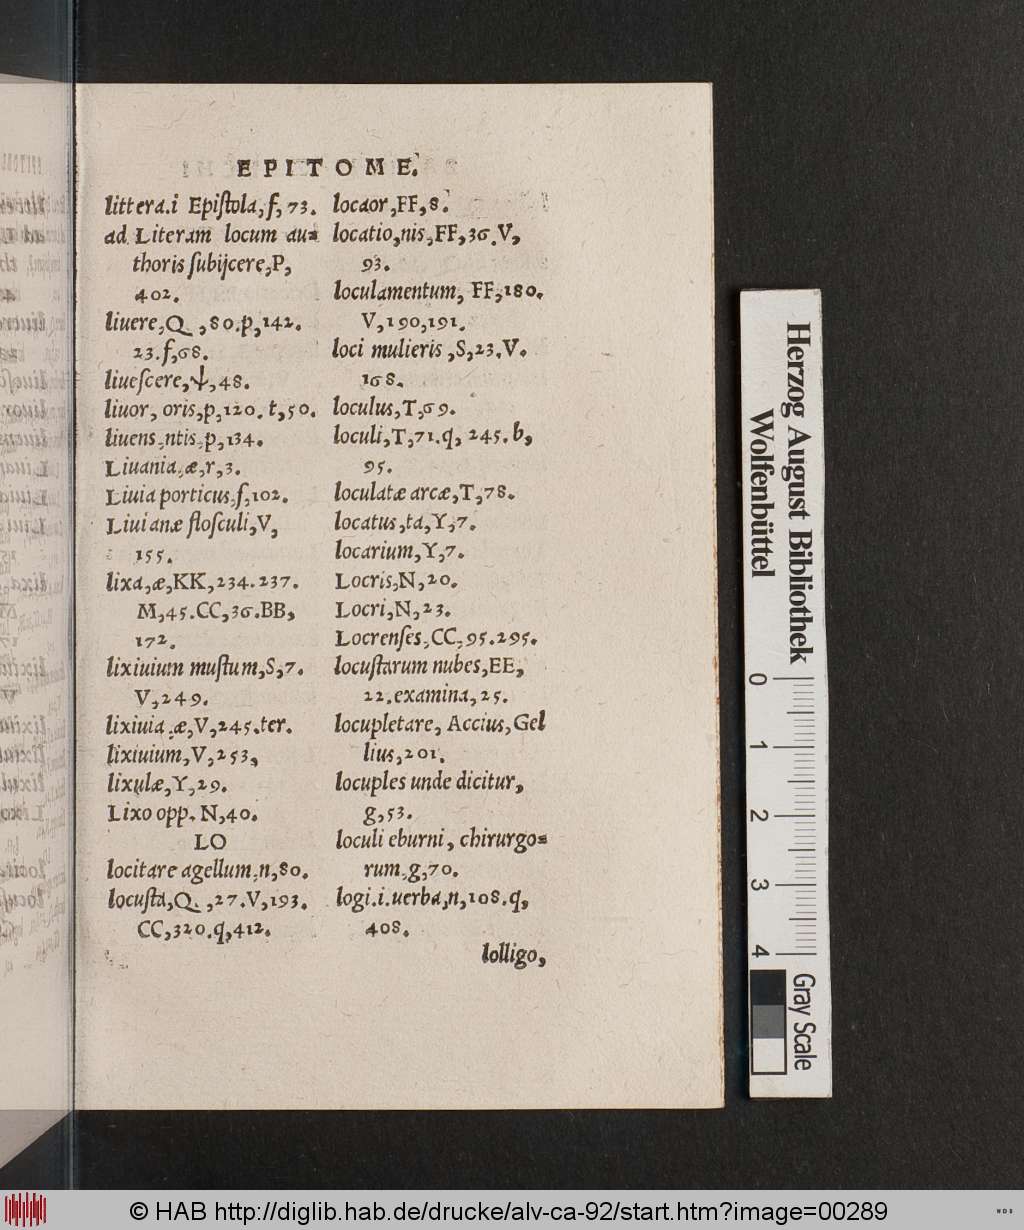 EPITOME.
littera.i Epistola,f,73.
ad Literam locum au=
thoris subijcere,P,
402.
liuere,Q ,80.p,142.
23.f,68.
liuescere,ψ,48.
liuor, oris,p,120. t,50.
liuens,ntis,p,134.
Liuania,æ,r,3.
Liuia porticus,f,102.
Liuianæ flosculi,V,
155.
lixa,æ,KK,234.237.
M,45.CC,36.BB,
172.
lixiuium mustum,S,7.
V,249.
lixiuia,æ,V,245.ter.
lixiuium,V,253,
lixulæ,Y,29.
Lixo opp. N,40.
LO
locitare agellum,n,80.
locusta,Q. ,27.V,193.
CC,320.q,412.
locaor,FF,8.
locatio,nis,FF,36.V,
93.
loculamentum, FF,180.
V,190,191.
loci mulieris ,S,23.V.
168.
loculus,T,69.
loculi,T,71.q, 245.b,
95.
loculatæ arcæ,T,78.
locatus,ta,Y,7.
locarium,Y,7.
Locris,N,20.
Locri,N,23.
Locrenses,CC,95.295.
locustarum nubes,EE,
22.examina,25.
locupletare, Accius,Gel
lius,201.
locuples unde dicitur,
g,53.
loculi eburni, chirurgo=
rum,g,70.
logi.i.uerba,n,108.q,
408.
lolligo,
Herzog August Bibliothek
Wolfenbüttel
0 1 2 3 4
Gray Scale
© HAB http://diglib.hab.de/drucke/alv-ca-92/start.htm?image=00289